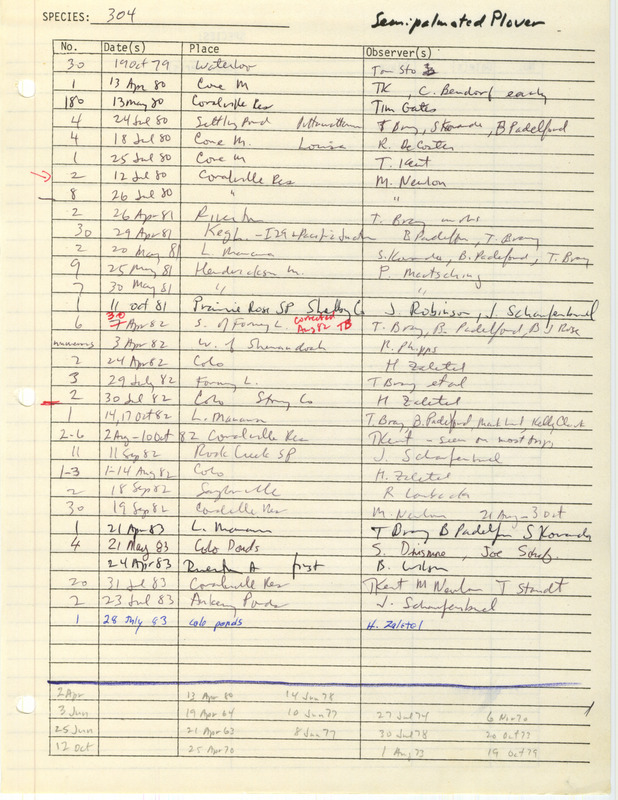 SPECIES: 304
Semipalmated Plover
No. Date(s) Place Observer(s)
30 19 Oct 79 Waterloo Tom Sto
1 13 Apr 80 Cone M TK, C. Bendorf early
180 13 May 80 Coralville Res Tim Gates
4 24 Jul 80 Settling Pond Pottawattam T Bray, S Kovanda, B Padelford
4 18 Jul 80 Cone M. Louisa R. DeCoster
1 25 Jul 80 Cone M T. Kent
2 12 Jul 80 Coralville Res M. Newlon
8 26 Jul 80 " "
2 26 Apr 81 Riverton T. Bray
30 29 Apr 81 KegL - I29 & Pacific Junction B Padelford, T. Bray
2 20 May 81 L. Manawa S. Kovanda, B. Padelford, T. Bray
9 25 May 81 Hendrickson M. P. Martsching
7 30 May 81 " "
1 11 Oct 81 Prairie Rose SP Shelby Co J. Robinson, J. Schaufenbuel
30
6 7 Apr 82 S. of Forney L. corrected Aug 82 TB T. Bray, B. Padelford, B J Rose
numerous 3 Apr 82 W. of Shenandoah R. Phipps
2 24 Apr 82 Colo H Zaletel
3 29 July 82 Forney L. T Bray et al
2 30 Jul 82 Colo Story Co H Zaletel
1 14, 17 Oct 82 L. Manawa T. Bray, B. Padelford
2-6 2 Aug - 10 Oct 82 Coralville Res TKent - seen on most trips
11 11 Sep 82 Rock Creek SP J. Schaufenbuel
1-3 1-14 Aug 82 Colo H. Zaletel
2 18 Sep 82 Saylorville R
30 19 Sep 82 Coralville Res M. Newlon 21 Aug - 3 Oct
1 21 Apr 83 L. Manawa T Bray B Padelford S Kovanda
4 21 May 83 Colo Ponds S. Dinsmore, Joe Schauf
24 Apr 83 Riverton A first B. Wilson
20 31 Jul 83 Coralville Res TKent M Newlon T Staudt
2 23 Jul 83 Ankeny Ponds J. Schaufenbuel
1 28 July 83 colo ponds H. Zaletel
2 Apr 13 Apr 80 14 Jun 78
3 Jun 19 Apr 64 10 Jun 77 27 Jul 74 6 Nov 70
25 Jun 21 Apr 63 8 Jun 77 30 Jul 78 20 Oct 73
12 Oct 25 Apr 70 1 Aug 73 19 Oct 79